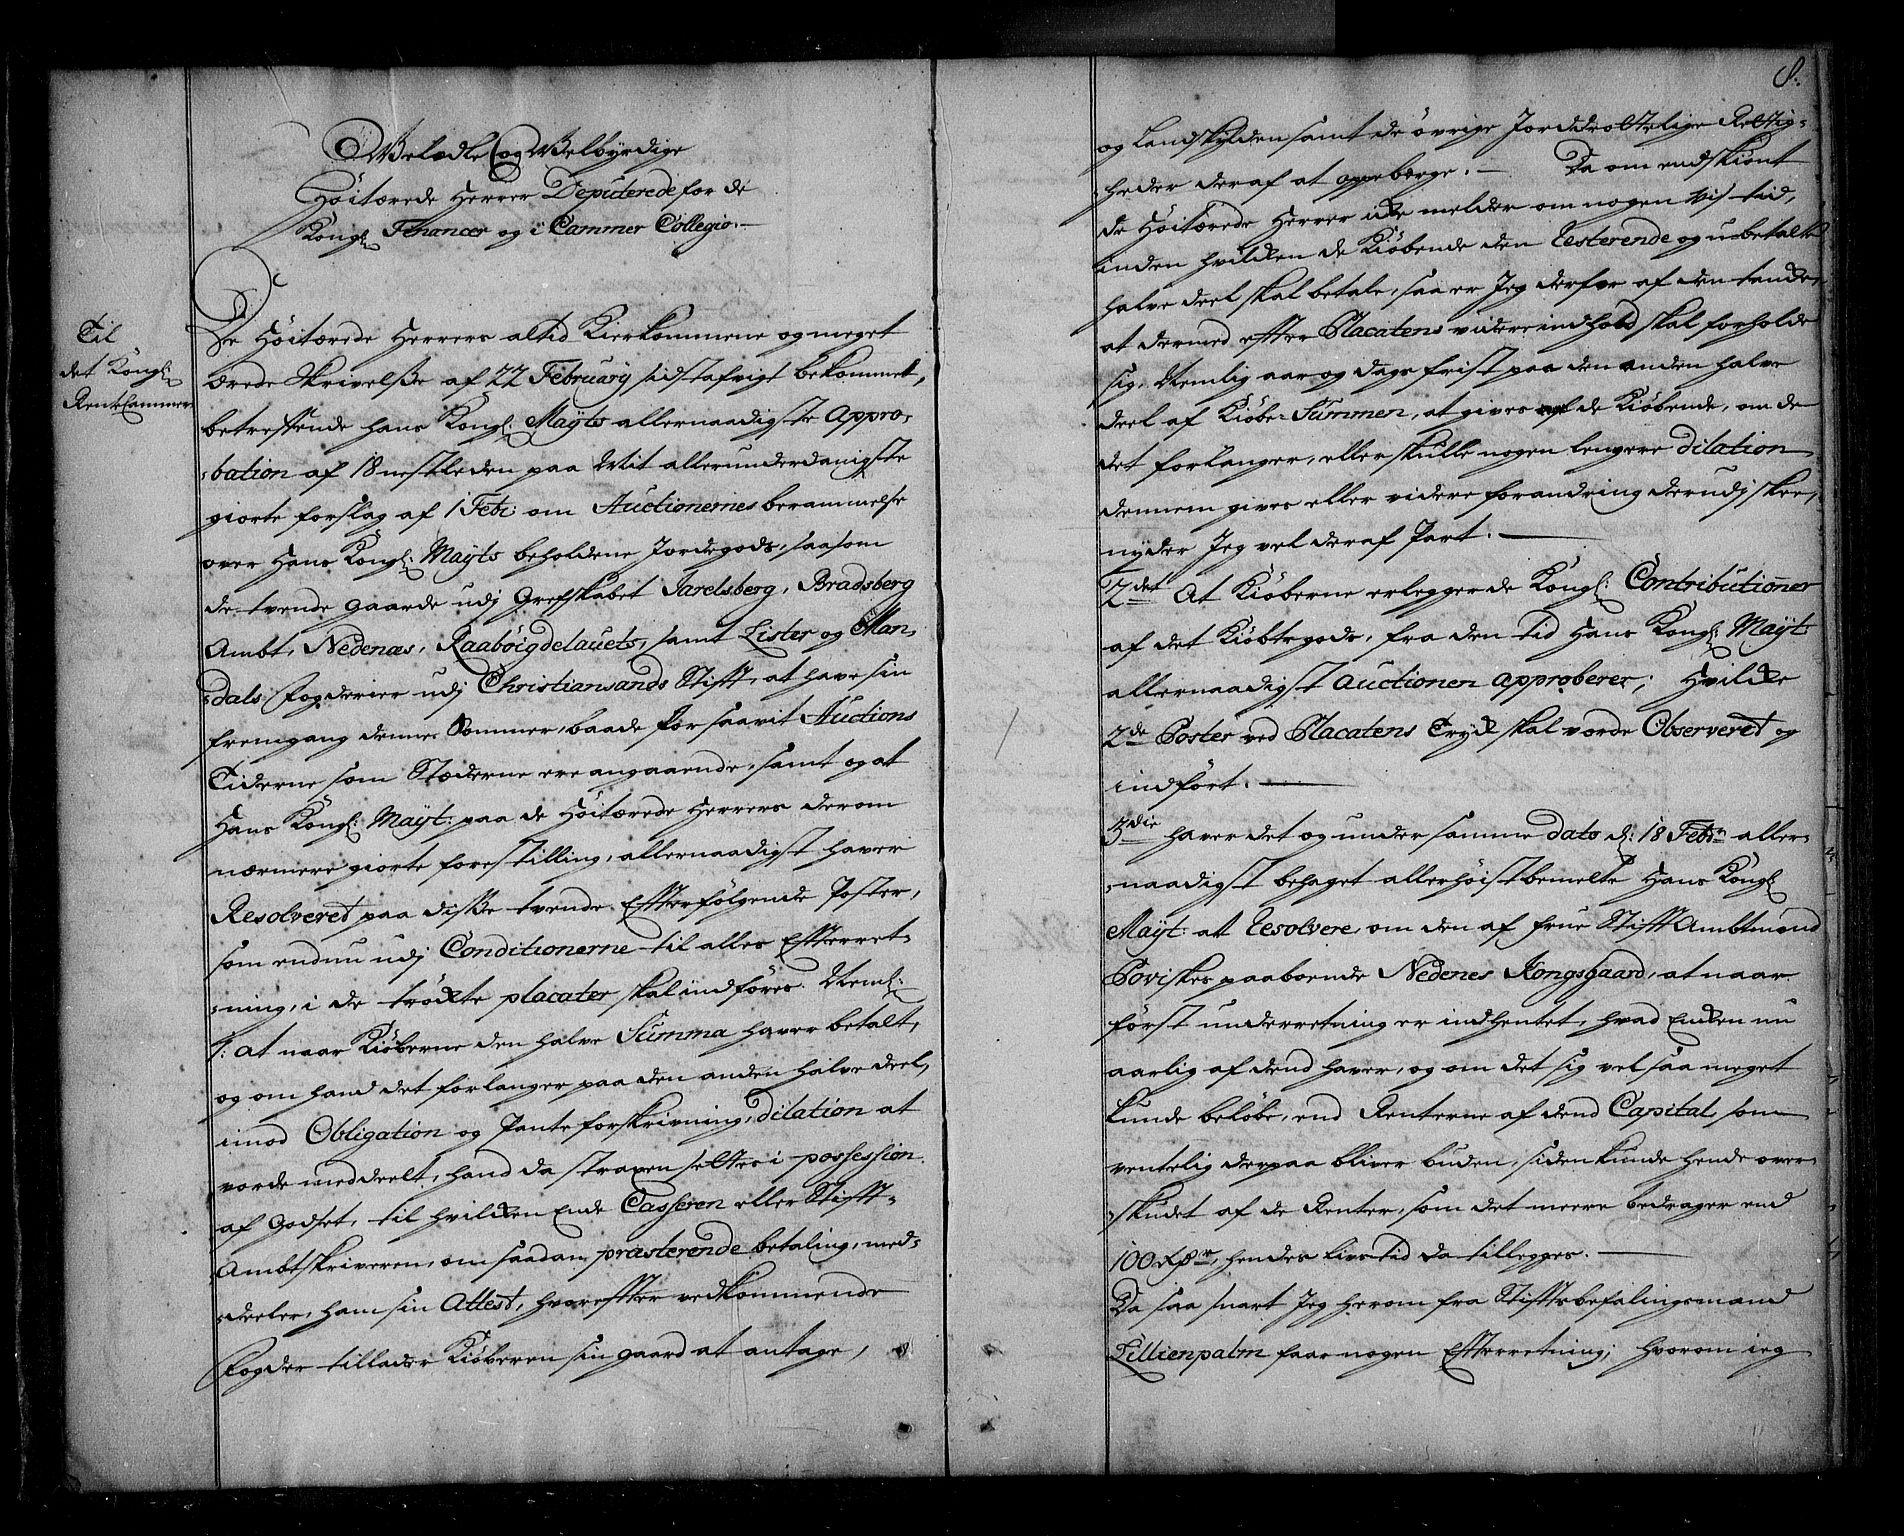 Welædle og Welbyrdige
Höitærede Herrer Deputerede for de
Kongl: Financer og i Cammer Collegio.
Til
det Kongl:
RenteCammer
De Höitærede Herrers altid Kierkommene og meget
ærede Skrivelse af 22 February sidst afvigt bekommet,
betreffende hans Kongl: Mayts allernaadigste Appro-
:bation af 18 nestleden paa Mit allerunderdanigste
giorte forslag af 1 Feb: om Auctionernes berammelse
over Hans Kongl: Mayts beholdene Jordegods, saasom
de tvende gaarde udj Grefskabet Jarelsberg, Bradsberg
Ambt, Nedenæs, Raaböigdelauets, samt Lister og Man,
:dals Fogderier udj Christiansands Stift, at have sin
fremgang denne Sommer, baade for saavit Auctions
Tiderne som Stæderne ere angaaende, samt og at
Hans Kongl: Mayt: paa de Höitærede Herrers derom
nærmere giorte forestilling, allernaadigst haver
Resolveret paa diße tvende Effterfölgende Poster,
som endnu udj Conditionerne til alles Effterret-
:ning, i de tröckte placater skal indföres. Neml:
1: at naar Kiöberne den halve Summa haver betalt,
og om hand det forlanger paa den anden halve deel,
imod Obligation og Pante forskrivning, dilation at
vorde meddeelt, hand da straxen settes i possession
af Godset, til hvilcken Ende Casseren eller Stifft-
Ambtskriveren, om saadan præsterende betaling, med-
:deeler, ham sin Attest, hvoreffter vedkommende
Fogder tillader Kiöberen sin gaard at antage,
8.
og Landskylden samt de övrige Jorddrottelige Rettig-
:heder deraf at oppebærge. Da om endskiönt
de Höitærede Herrer icke melder om nogen vis tid,
inden hvilcken de Kiöbende den Resterende og ubetalte
halve deel skal betale, saa er Jeg derfor af den tancke,
at dermed effter Placatens viidere indhold skal forholde
sig, Nemlig aar og dags frist paa den anden halve
deel af Kiöbe-Summen, at gives de Kiöbende, om de
det forlanger, eller skulle nogen lengere dilation
dennem gives eller videre forandring derudj skee,
nyder Jeg vel deraf Part.
2det At Kiöberne erlegger de Kongl: Contributioner
af det Kiöbte gods, fra den tid Hans Kongl: Mayt:
allernaadigst Auctionen approberer; Hvilcke
2de Poster ved Placatens Tryck skal vorde Observeret og
indfört.
3die haver det og under samme dato d: 18 Febr: aller-
:naadigst behaget allerhöistbemelte Hans Kongl:
Mayt: at Resolvere, om den af Frue Stifft Ambtmand
Poviskes paaboende Nedenes Kongsgaard, at naar
först underretning er indhentet, hvad Encken nu
aarlig af dend haver, og om det sig vel saa meget
kunde belöbe, end Renterne af dend Capital, som
ventelig derpaa bliver buden, siden kunde hende over-
:skudet af de Renter, som det meere bedrager end
100 Rdr, hendes livs tid da tillegges.
Da saa snart Jeg herom fra Stifftsbefalingsmand
Lillienpalm faar nogen Effterretning; hvorom ieg